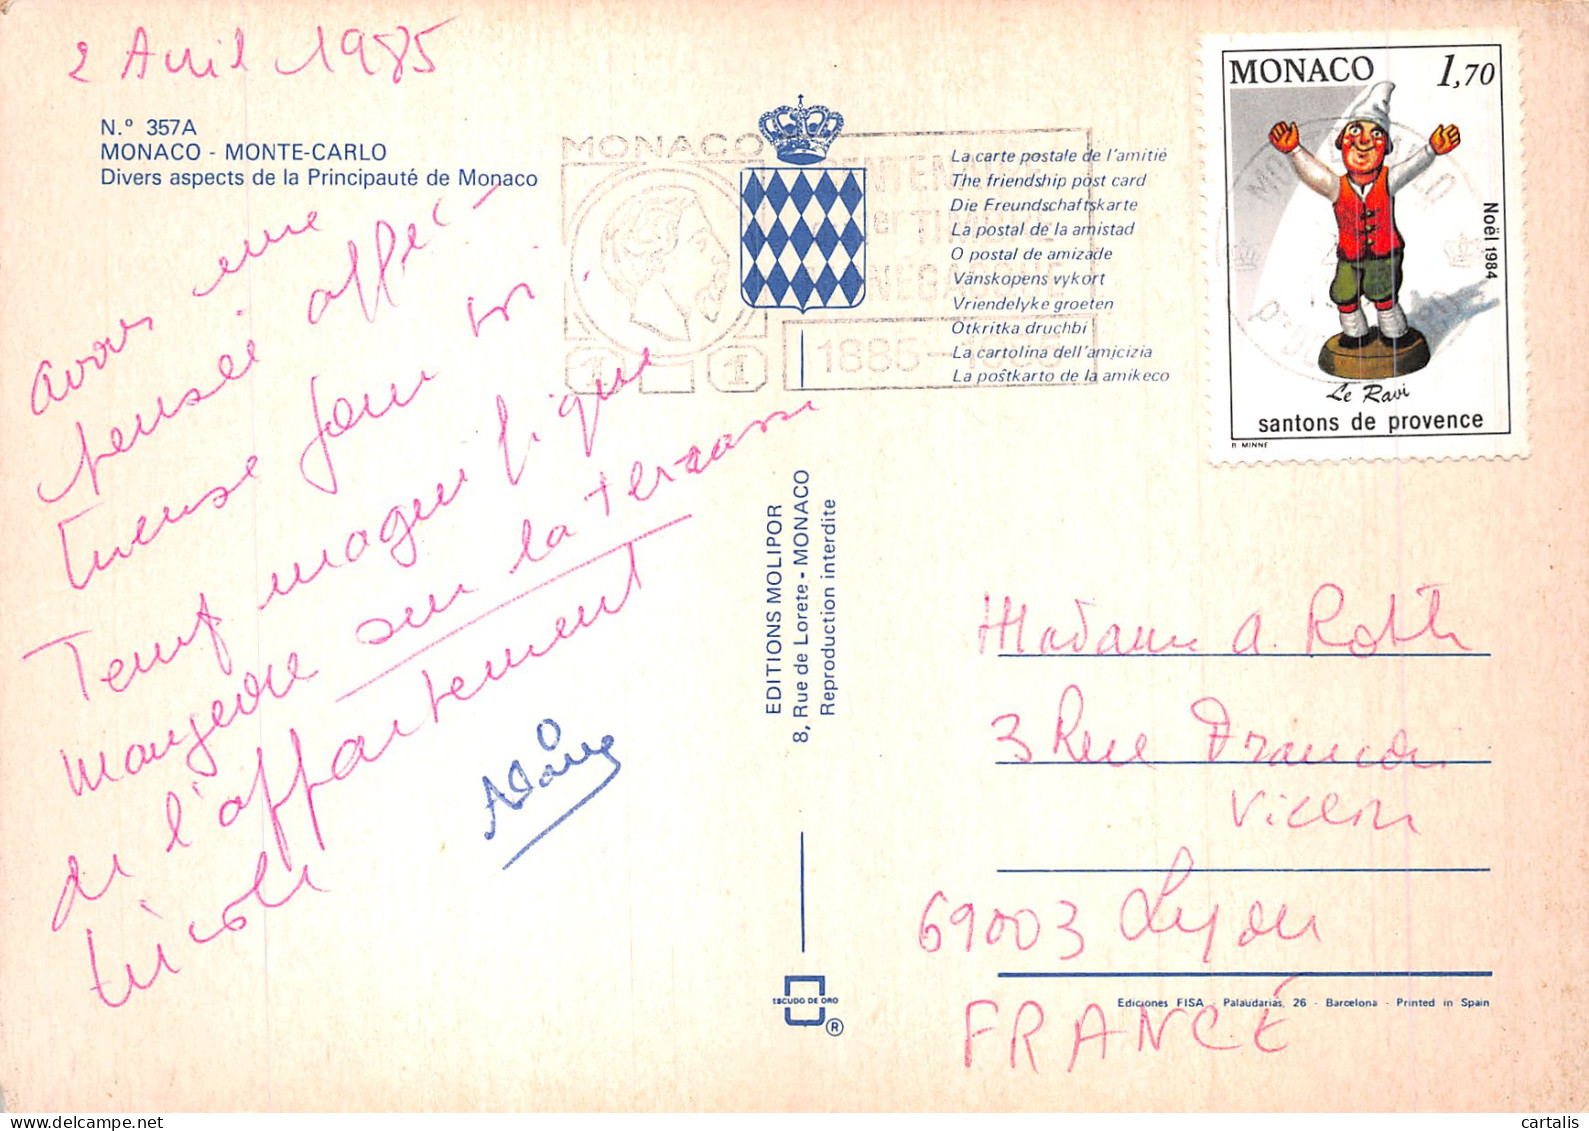 2 Avril 1985
N.º 357A
MONACO - MONTE-CARLO
Divers aspects de la Principauté de Monaco
avons une
pensée affec-
tueuse pour toi.
Temps magnifique
mangeons sur la terrasse
de l'appartement
Nicole
MONACO
CENTENAIRE
1er TIMBRE
MONÉGASQUE
1885-1985
1
1
La carte postale de l'amitié
The friendship post card
Die Freundschaftskarte
La postal de la amistad
O postal de amizade
Vänskopens vykort
Vriendelyke groeten
Otkritka druchbi
La cartolina dell'amicizia
La poŝtkarto de la amikeco
MONACO 1,70
Noël 1984
Le Ravi
santons de provence
R. MINNE
EDITIONS MOLIPOR
8, Rue de Lorete - MONACO
Reproduction interdite
Madame A. Roth
3 Rue Francois
69003 Lyon
FRANCE
ESCUDO DE ORO
®
Ediciones FISA - Palaudarias, 26 - Barcelona - Printed in Spain
cartalis